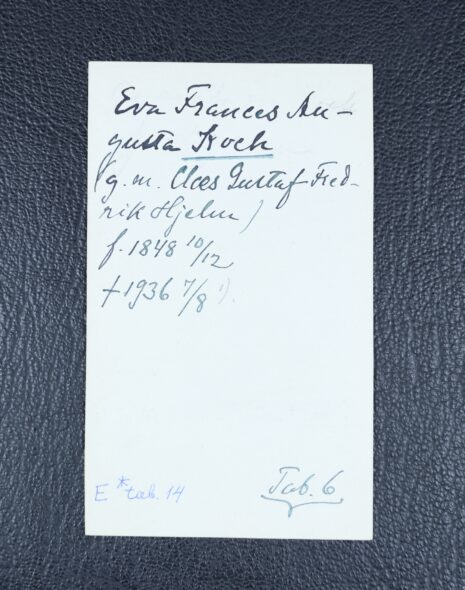 Eva Frances Au-
gusta Koch
(g. m. Claes Gustaf Fred-
rik Hjelm)
f. 1848 10/12
† 1936 7/8 1).
E * tab. 14
Tab. 6